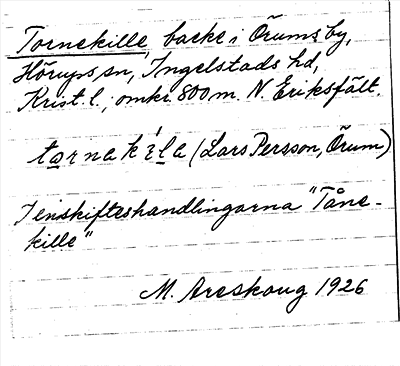 Tornekille, backe i Örums by,
Hörups sn, Ingelstads hd,
Krist. l., omkr. 800 m. N. Eriksfält.
tornakíla (Lars Persson, Örum)
I enskifteshandlingarna "Tåne-
kille"
M. Areskoug 1926